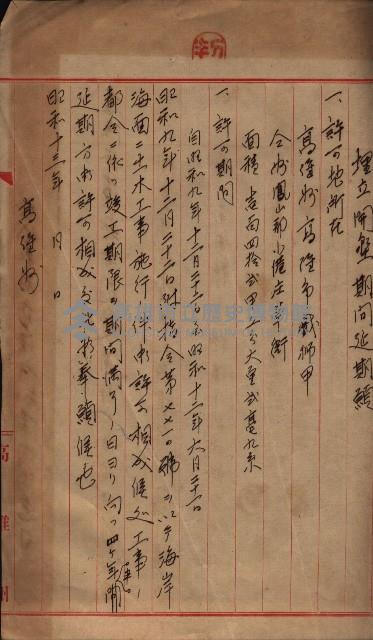 埋立開墾期間延期願
一、許可地所在
高雄州高雄市戲獅甲
仝州鳳山郡小港庄
面積 壱百四拾弐甲
一、許可期間
自昭和九年十二月二十二日 昭和十三年六月二十一日
昭和九年十二月二十二日附指令第 號ヲ以テ海岸
海面ニ土木工事施行ノ件御許可相成候処工事ノ
都合ニ依リ竣工期限ノ期間満了ノ日ヨリ向フ四ヶ年間
延期方御許可相成度此段奉願候也
昭和十三年 月 日
高雄州
高雄州
高雄市立歷史博物館